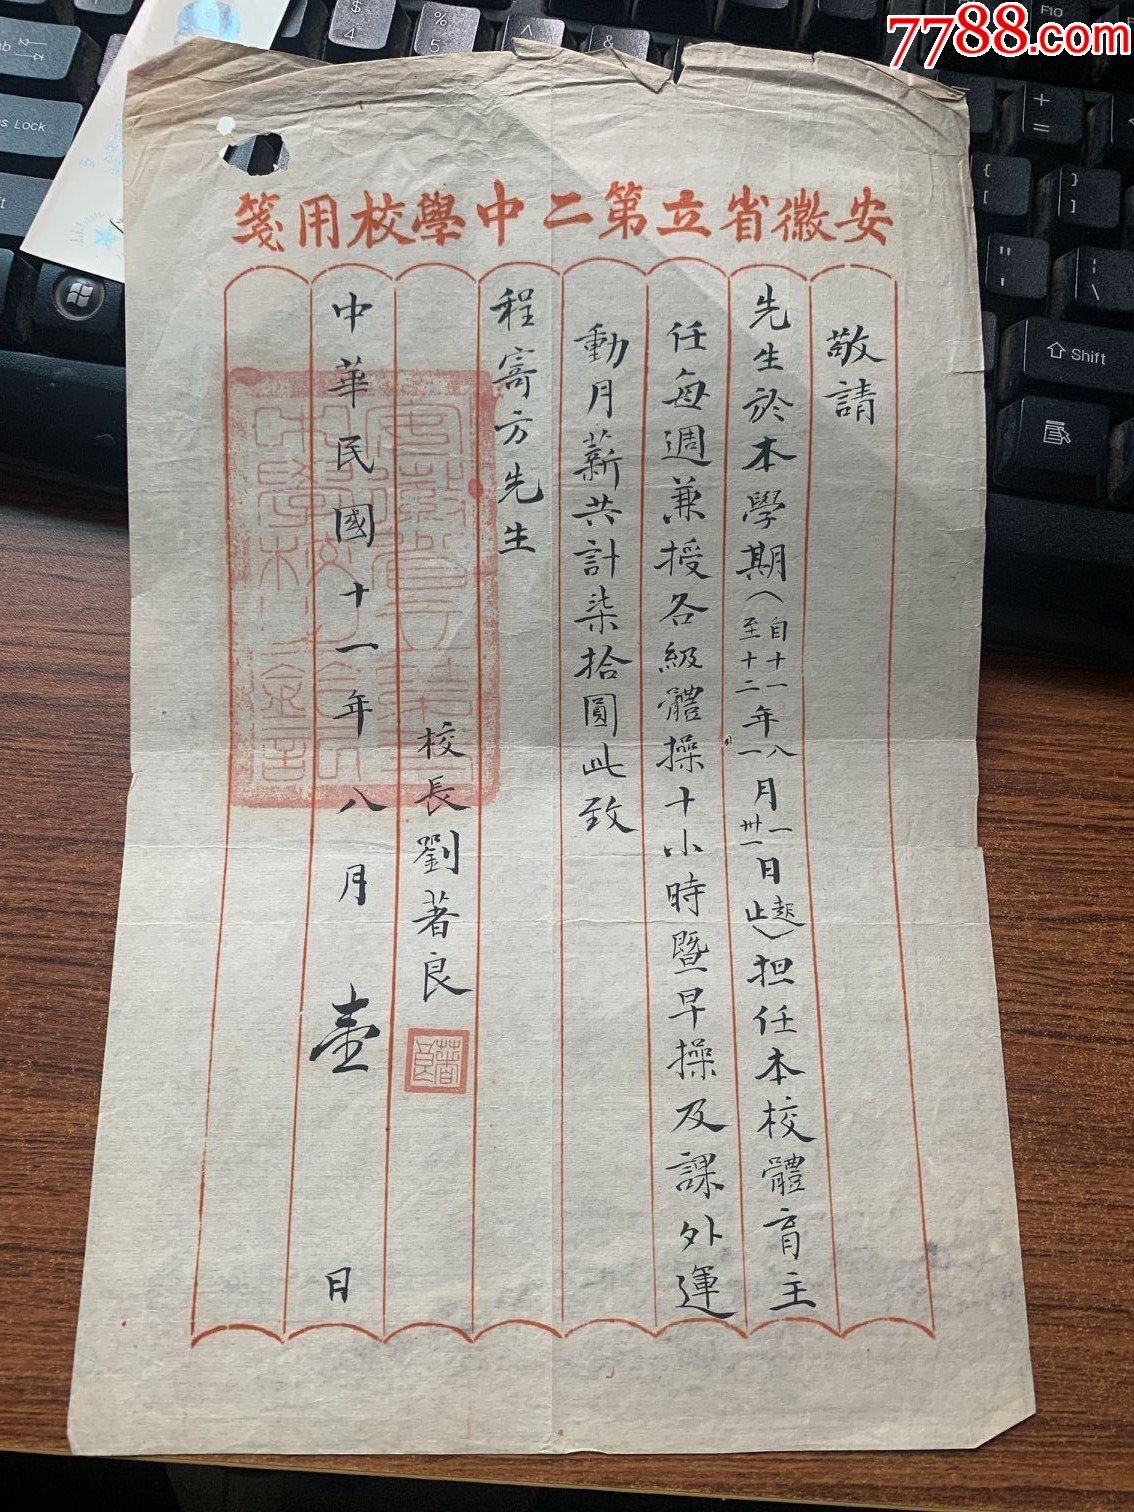 7788.com
安徽省立第二中學校用箋
敬請
先生於本學期（自十一年八月一日起至十二年一月卅一日止）担任本校體育主
任每週兼授各級體操十小時暨早操及課外運
動月薪共計柒拾圓此致
程寄方先生
校長劉著良
中華民國十一年八月壹日